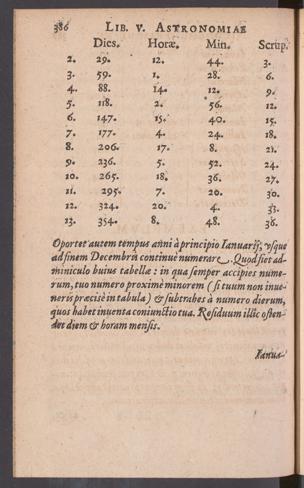 386 LIB. V. ASTRONOMIAE
Dies. Horæ. Min. Scrup.
2. 29. 12. 44. 3.
3. 59. 1. 28. 6.
4. 88. 14. 12. 9.
5. 118. 2. 56. 12.
6. 147. 15. 40. 15.
7. 177. 4. 24. 18.
8. 206. 17. 8. 21.
9. 236. 5. 52. 24.
10. 265. 18. 36. 27.
11. 295. 7. 20. 30.
12. 324. 20. 4. 33.
13. 354. 8. 48. 36.
Oportet autem tempus anni à principio Ianuarij, vsque
ad finem Decembris continuè numerare. Quod fiet ad-
miniculo huius tabellæ: in qua semper accipies nume-
rum, tuo numero proximè minorem (si tuum non inue-
neris præcisè in tabula) & subtrahes à numero dierum,
quos habet inuenta coniunctio tua. Residuum illic osten-
det diem & horam mensis.
Ianua-